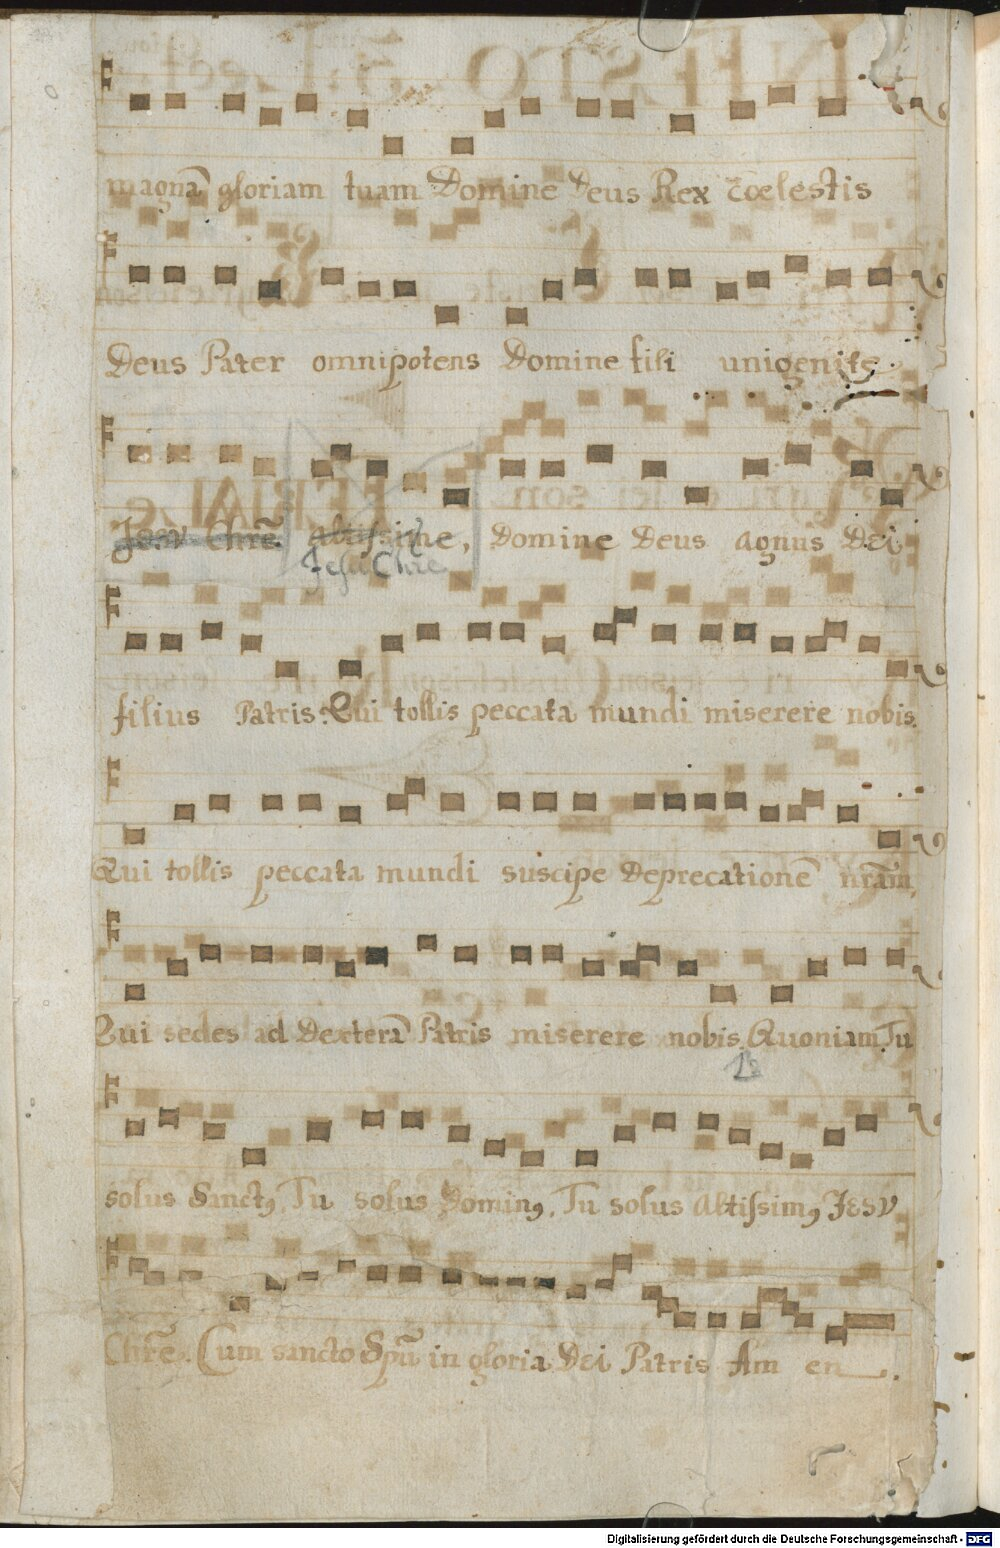 magnā gloriam tuam Domine Deus Rex cœlestis
Deus Pater omnipotens Domine fili unigenite
Jesu Chrē altissime, Domine Deus agnus Dei
Jesu Chre
filius Patris: Qui tollis peccata mundi miserere nobis.
Qui tollis peccata mundi suscipe Deprecationē nr̄am,
Qui sedes ad Dexterā Patris miserere nobis. Quoniam Tu
solus Sanctꝰ, Tu solus Dominꝰ, Tu solus Altissimꝰ JESV
Chrē. Cum sancto Spū in gloria Dei Patris Am en.
Digitalisierung gefördert durch die Deutsche Forschungsgemeinschaft - DFG